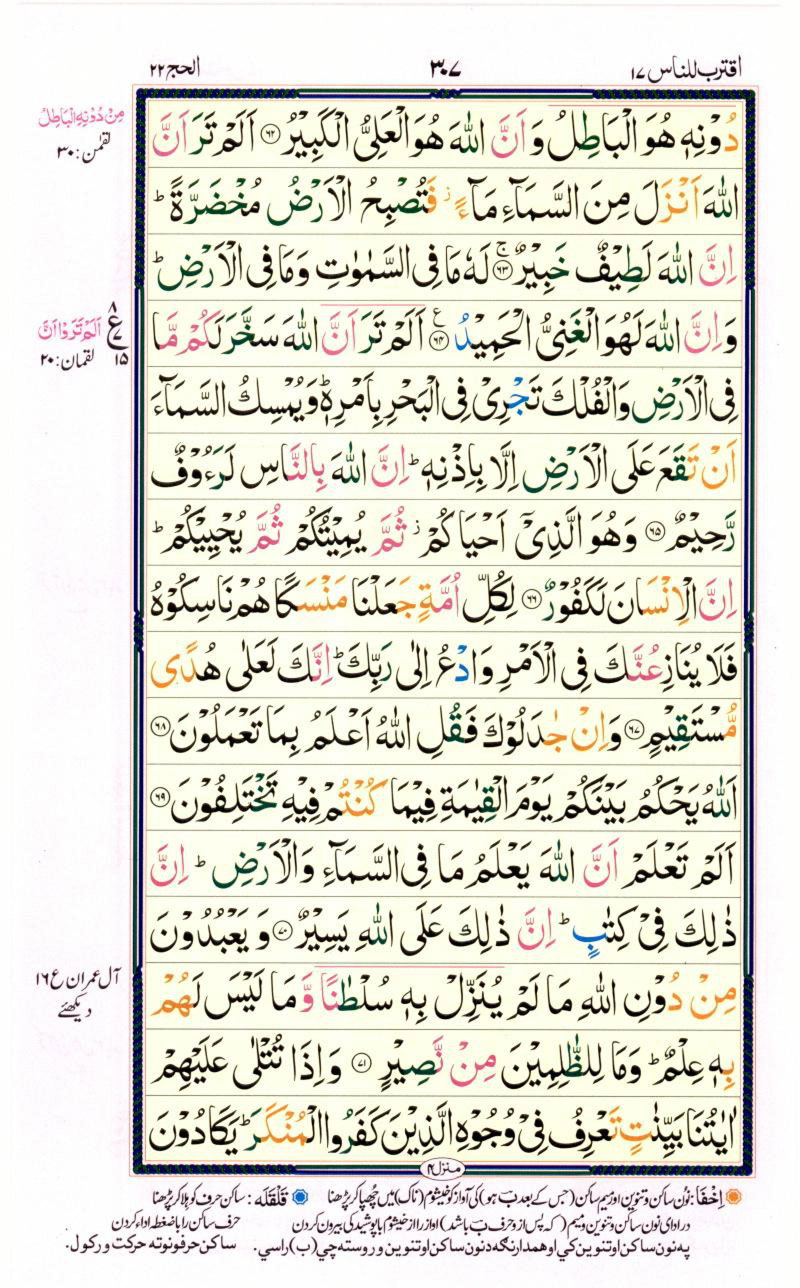 اقترب للناس ۱۷
۳۰۷
الحج ۲۲
دُوْنِهٖ هُوَ الْبَاطِلُ وَ اَنَّ اللّٰهَ هُوَ الْعَلِىُّ الْكَبِيْرُ ﴿۶۲﴾ اَلَمْ تَرَ اَنَّ
اللّٰهَ اَنْزَلَ مِنَ السَّمَآءِ مَآءً ز فَتُصْبِحُ الْاَرْضُ مُخْضَرَّةً ط
اِنَّ اللّٰهَ لَطِيْفٌ خَبِيْرٌ ﴿۶۳﴾ ج لَهٗ مَا فِى السَّمٰوٰتِ وَمَا فِى الْاَرْضِ ط
وَ اِنَّ اللّٰهَ لَهُوَ الْغَنِىُّ الْحَمِيْدُ ﴿۶۴﴾ ع اَلَمْ تَرَ اَنَّ اللّٰهَ سَخَّرَ لَكُمْ مَّا
فِى الْاَرْضِ وَالْفُلْكَ تَجْرِىْ فِى الْبَحْرِ بِاَمْرِهٖ ط وَيُمْسِكُ السَّمَآءَ
اَنْ تَقَعَ عَلَى الْاَرْضِ اِلَّا بِاِذْنِهٖ ط اِنَّ اللّٰهَ بِالنَّاسِ لَرَءُوْفٌ
رَّحِيْمٌ ﴿۶۵﴾ وَهُوَ الَّذِىْۤ اَحْيَاكُمْ ز ثُمَّ يُمِيْتُكُمْ ثُمَّ يُحْيِيْكُمْ ط
اِنَّ الْاِنْسَانَ لَكَفُوْرٌ ﴿۶۶﴾ لِكُلِّ اُمَّةٍ جَعَلْنَا مَنْسَكًا هُمْ نَاسِكُوْهُ
فَلَا يُنَازِعُنَّكَ فِى الْاَمْرِ وَادْعُ اِلٰى رَبِّكَ ط اِنَّكَ لَعَلٰى هُدًى
مُّسْتَقِيْمٍ ﴿۶۷﴾ وَاِنْ جٰدَلُوْكَ فَقُلِ اللّٰهُ اَعْلَمُ بِمَا تَعْمَلُوْنَ ﴿۶۸﴾
اَللّٰهُ يَحْكُمُ بَيْنَكُمْ يَوْمَ الْقِيٰمَةِ فِيْمَا كُنْتُمْ فِيْهِ تَخْتَلِفُوْنَ ﴿۶۹﴾
اَلَمْ تَعْلَمْ اَنَّ اللّٰهَ يَعْلَمُ مَا فِى السَّمَآءِ وَالْاَرْضِ ط اِنَّ
ذٰلِكَ فِىْ كِتٰبٍ ط اِنَّ ذٰلِكَ عَلَى اللّٰهِ يَسِيْرٌ ﴿۷۰﴾ وَ يَعْبُدُوْنَ
مِنْ دُوْنِ اللّٰهِ مَا لَمْ يُنَزِّلْ بِهٖ سُلْطٰنًا وَّ مَا لَيْسَ لَهُمْ
بِهٖ عِلْمٌ ط وَمَا لِلظّٰلِمِيْنَ مِنْ نَّصِيْرٍ ﴿۷۱﴾ وَاِذَا تُتْلٰى عَلَيْهِمْ
اٰيٰتُنَا بَيِّنٰتٍ تَعْرِفُ فِىْ وُجُوْهِ الَّذِيْنَ كَفَرُوا الْمُنْكَرَ ط يَكَادُوْنَ
مِنْ دُوْنِهِ الْبَاطِلُ
لقمٰن : ۳۰
۸
ع
۷
۱۵
اَلَمْ تَرَوْا اَنَّ
لقمان : ۲۰
آل عمران ع ۱۶
دیکھئے
منزل ۴
اِخفَا: نُون ساکن و تنوین اور میم ساکن (جس کے بعد بَ ہو) کی آواز کو خیشوم (ناک) میں چُھپا کر پڑھنا
قَلقَلَه: ساکن حرف کو ہِلا کر پڑھنا
در ادای نون ساکن و تنوین و میم (که پس از و حرف بَ باشد) اواز را از خیشوم با پوشیدگی بیرون کردن
حرف ساکن را با ضغطہ اداء کردن
په نون ساکن او تنوین کي او همدارنګه د نون ساکن او تنوین و روسته چي (ب) راسي.
ساکن حرفونو ته حرکت ورکول.